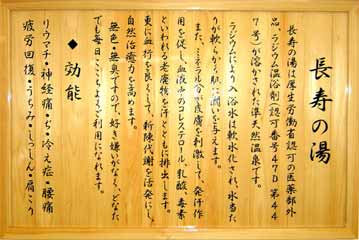 長寿の湯
長寿の湯は厚生労働省認可の医薬部外
品、ラジウム温浴剤(認可番号47D第44
7号)が溶かされた準天然温泉です。
ラジウムにより入浴水は軟水化され、水当た
りが軟かく肌に潤いを与えます。
また、ミネラル分で皮膚を刺激して、発汗作
用を促し、血液中のコレステロール、乳酸、毒素
といわれる老廃物を汗とともに排出します。
更に血行を良くして、新陳代謝を活発にし、
自然治癒力を高めます。
無色・無臭ですので、好き嫌いがなく、どなた
でも毎日ここちよくご利用になれます。
◆効能
リウマチ・神経痛・ぢ・冷え症・腰痛
疲労回復・うちみ・しっしん・肩こり